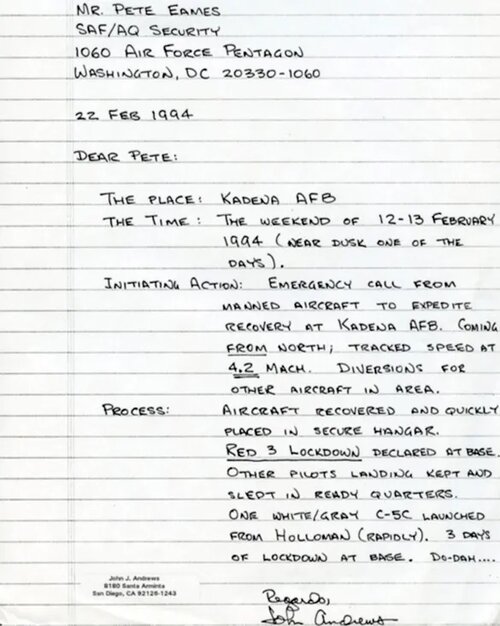 Mr. Pete Eames
SAF/AQ Security
1060 Air Force Pentagon
Washington, DC 20330-1060
22 Feb 1994
Dear Pete:
The Place: Kadena AFB
The Time: The weekend of 12-13 February
1994 (near dusk one of the
days).
Initiating Action: Emergency call from
manned aircraft to expedite
recovery at Kadena AFB. Coming
from north; tracked speed at
4.2 Mach. Diversions for
other aircraft in area.
Process: Aircraft recovered and quickly
placed in secure hangar.
Red 3 Lockdown declared at base.
Other pilots landing kept and
slept in ready quarters.
One white/gray C-5C launched
from Holloman (rapidly). 3 days
of lockdown at base. Do-dah....
John J. Andrews
8180 Santa Arminta
San Diego, CA 92126-1243
Regards,
John Andrews